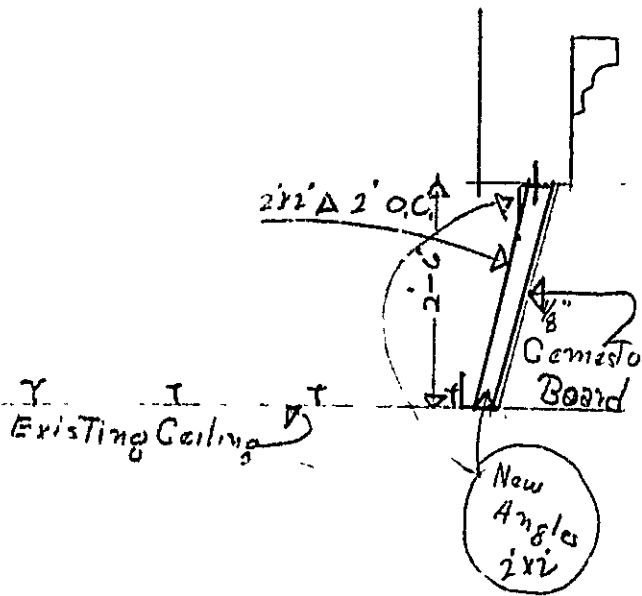 2'x2' Δ 2' O.C.
2'-6"
1/8"
Cemesto
Board
Existing Ceiling
New
Angles
2'x2'